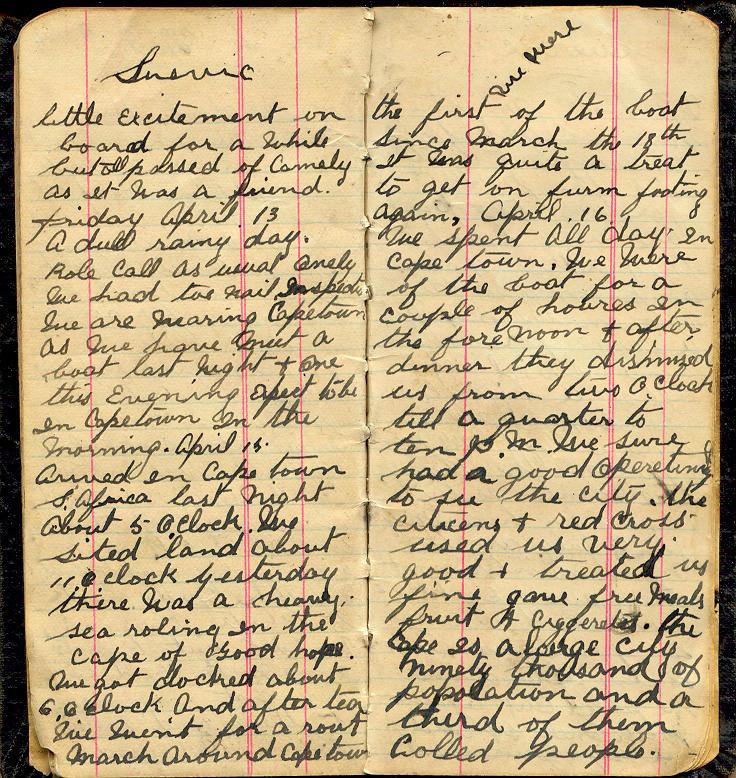 Suevic
little Excitement on
board for a While
but all passed of Camely
as it was a friend.
Friday April. 13
A dull rainy day.
Role Call as usual onely
We had toe nail Inspection
We are nearing Capetown
As We signe Meet a
boat last Night + one
this Evening Expect to be
in Capetown In the
morning. April 15.
Arived en Cape town
S. Africa last Night
About 5 O Clock. We
sited land about
11 O clock yesterday
there Was a heavy.
sea roling In the
Cape of Good hope.
We got docked about
6, O Clock And after tea
We Went for a rout
March Around Cape town
We Were
the first of the boat
since March the 13th
It Was quite a treat
to get on furm footing
again, April. 16.
We spent All day. In
Cape town. We Were
of the boat for a
couple of houres In
the fore noon + after
dinner they dismised
us from two O Clock
till a quarter to
ten P.M. We sure
had a good Operetunity
to see the city. the
citizens + red Cross
used us very.
good + treated us
fine gave free Meals
fruit & Ciggeretes. the
Cape Is a large City
Ninety thousand of
popolation and a
third of them
Colled people.